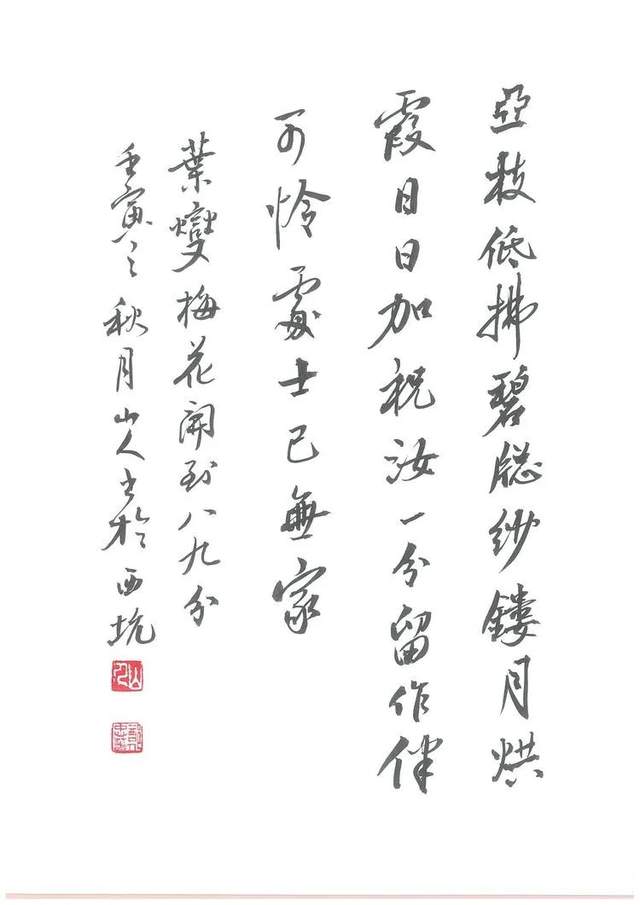 亞枝低拂碧牕紗鏤月烘
霞日日加祝汝一分留作伴
可怜處士已無家
葉燮梅花開到八九分
壬寅之秋月山人书於西坑
山人